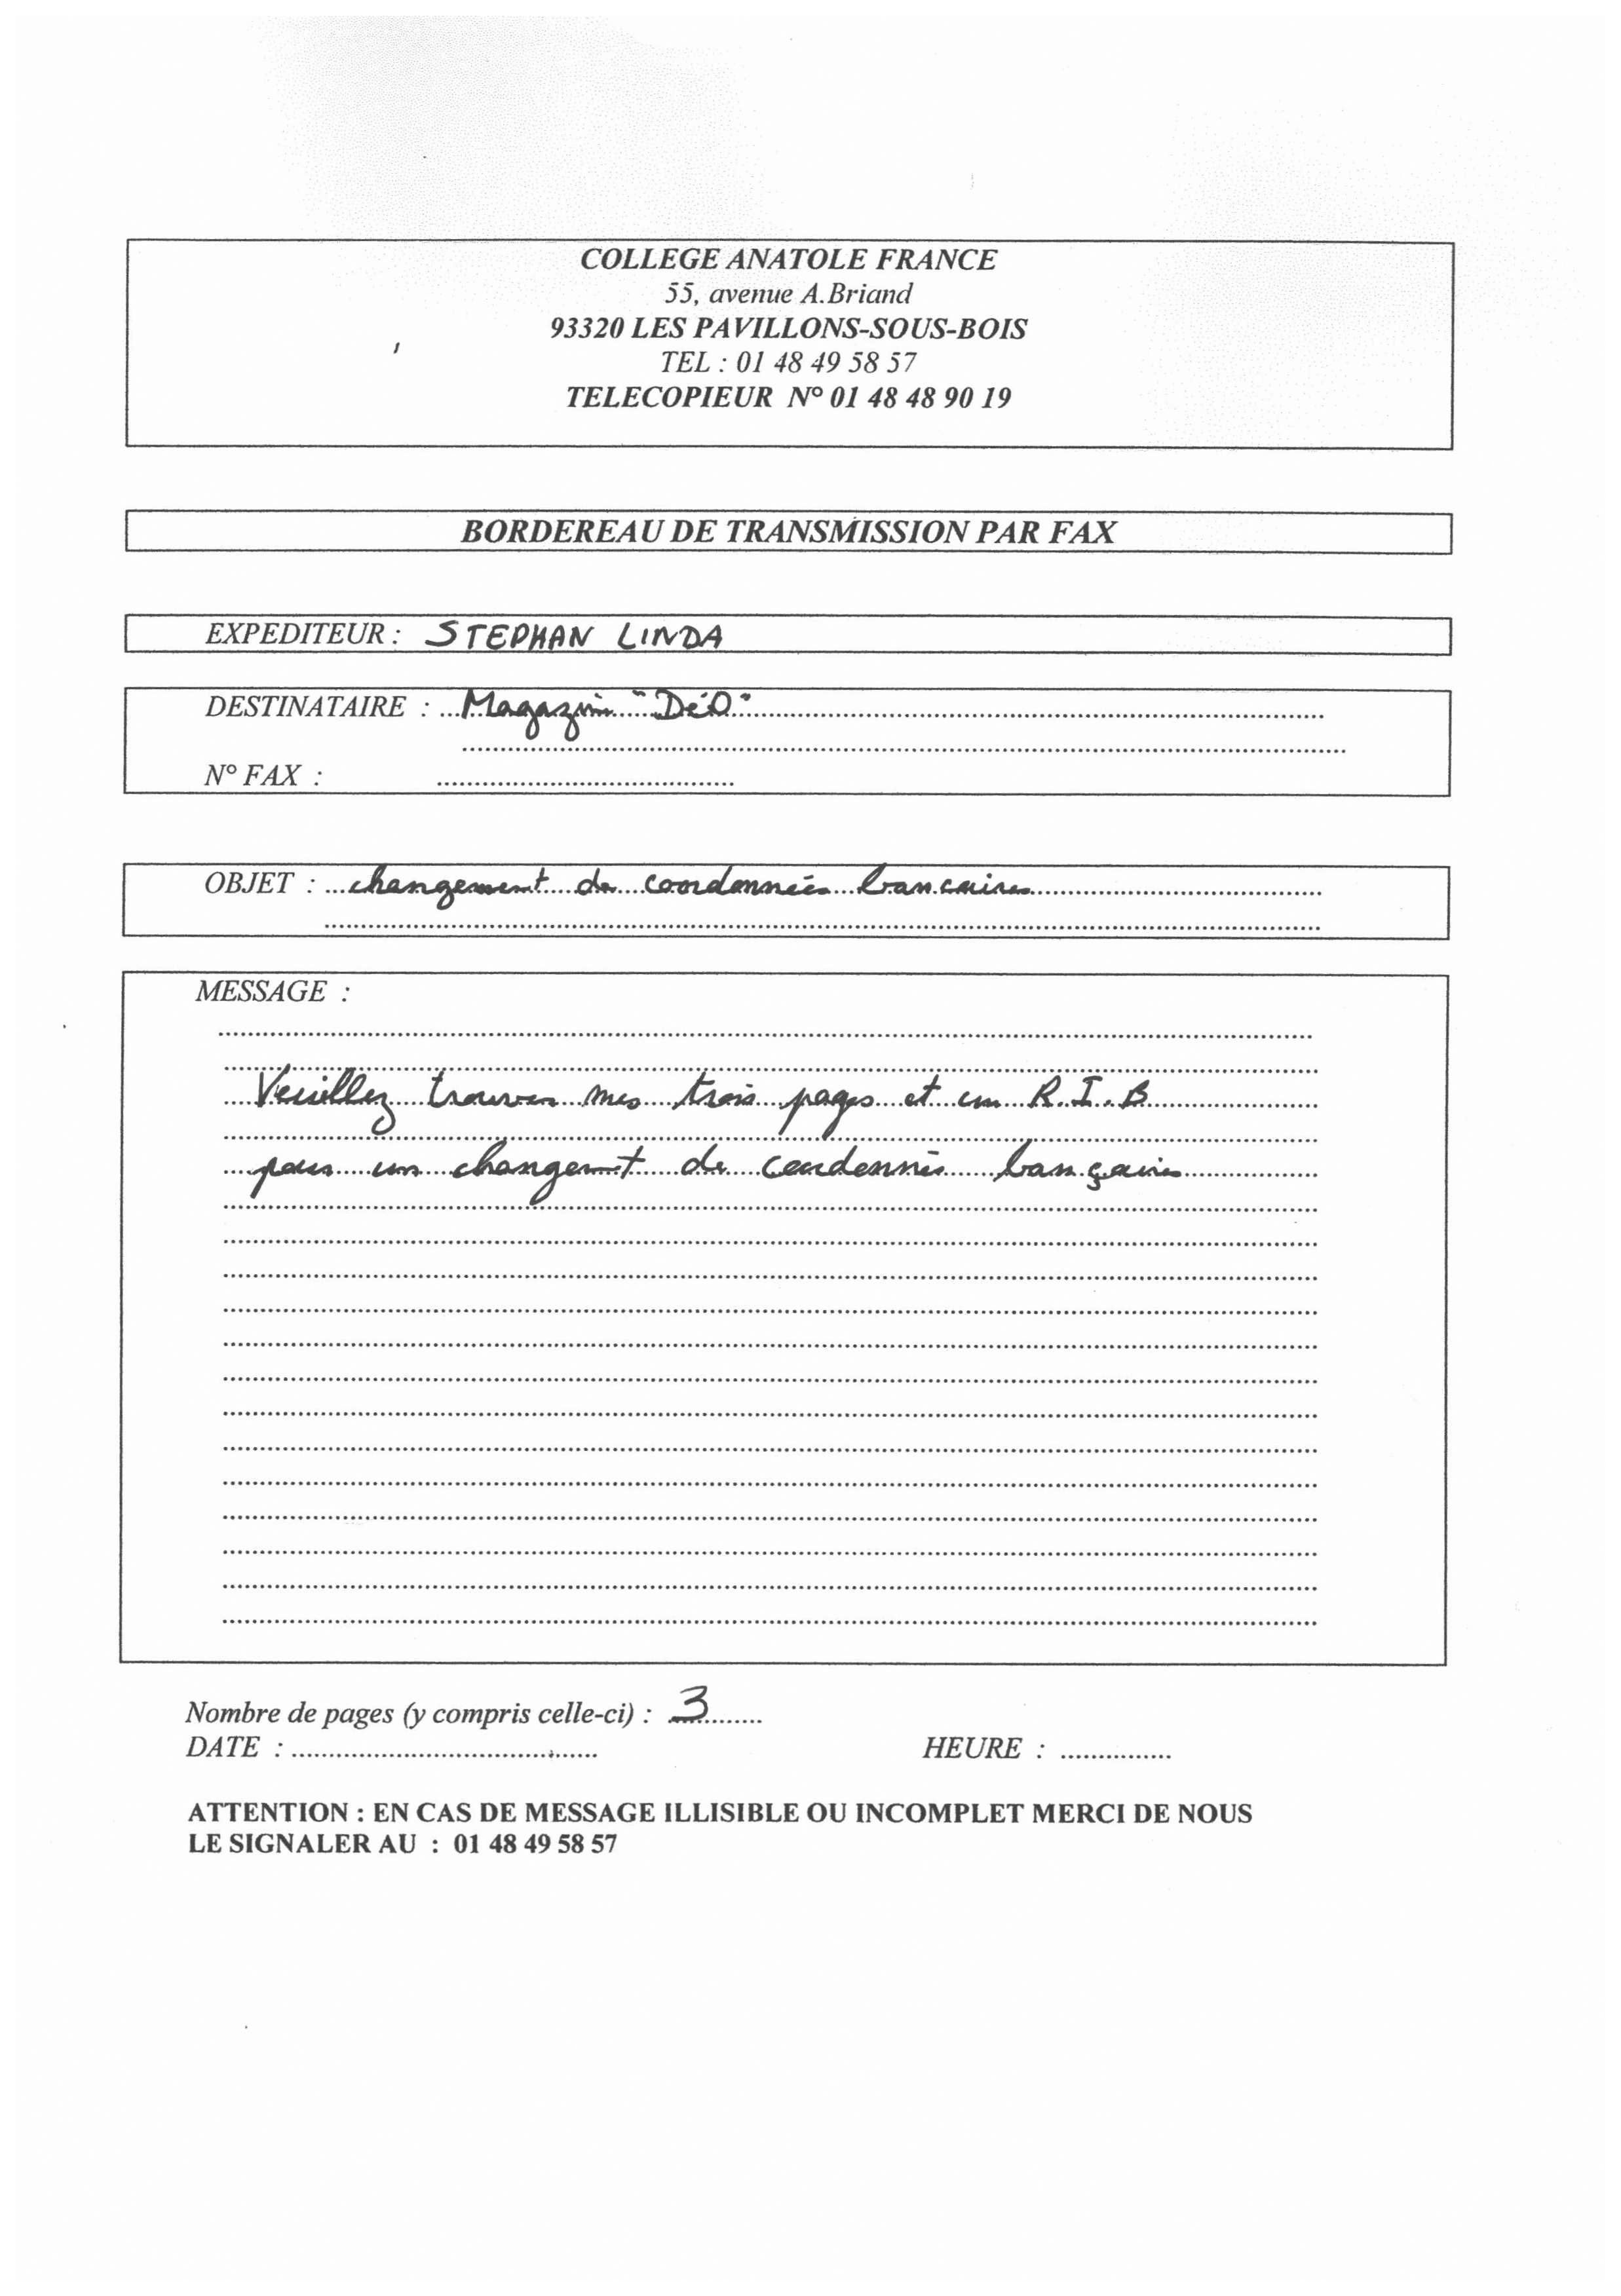 COLLEGE ANATOLE FRANCE
55, avenue A.Briand
93320 LES PAVILLONS-SOUS-BOIS
TEL : 01 48 49 58 57
TELECOPIEUR N° 01 48 48 90 19
BORDEREAU DE TRANSMISSION PAR FAX
EXPEDITEUR : STEPHAN LINDA
DESTINATAIRE : Magazin "DéO"
N° FAX :
OBJET : changement de coordonnées bancaires
MESSAGE :
Veuillez trouver mes trois pages et un R.I.B
pour un changement de coordonnés bançaires
Nombre de pages (y compris celle-ci) : 3
DATE : HEURE :
ATTENTION : EN CAS DE MESSAGE ILLISIBLE OU INCOMPLET MERCI DE NOUS
LE SIGNALER AU : 01 48 49 58 57